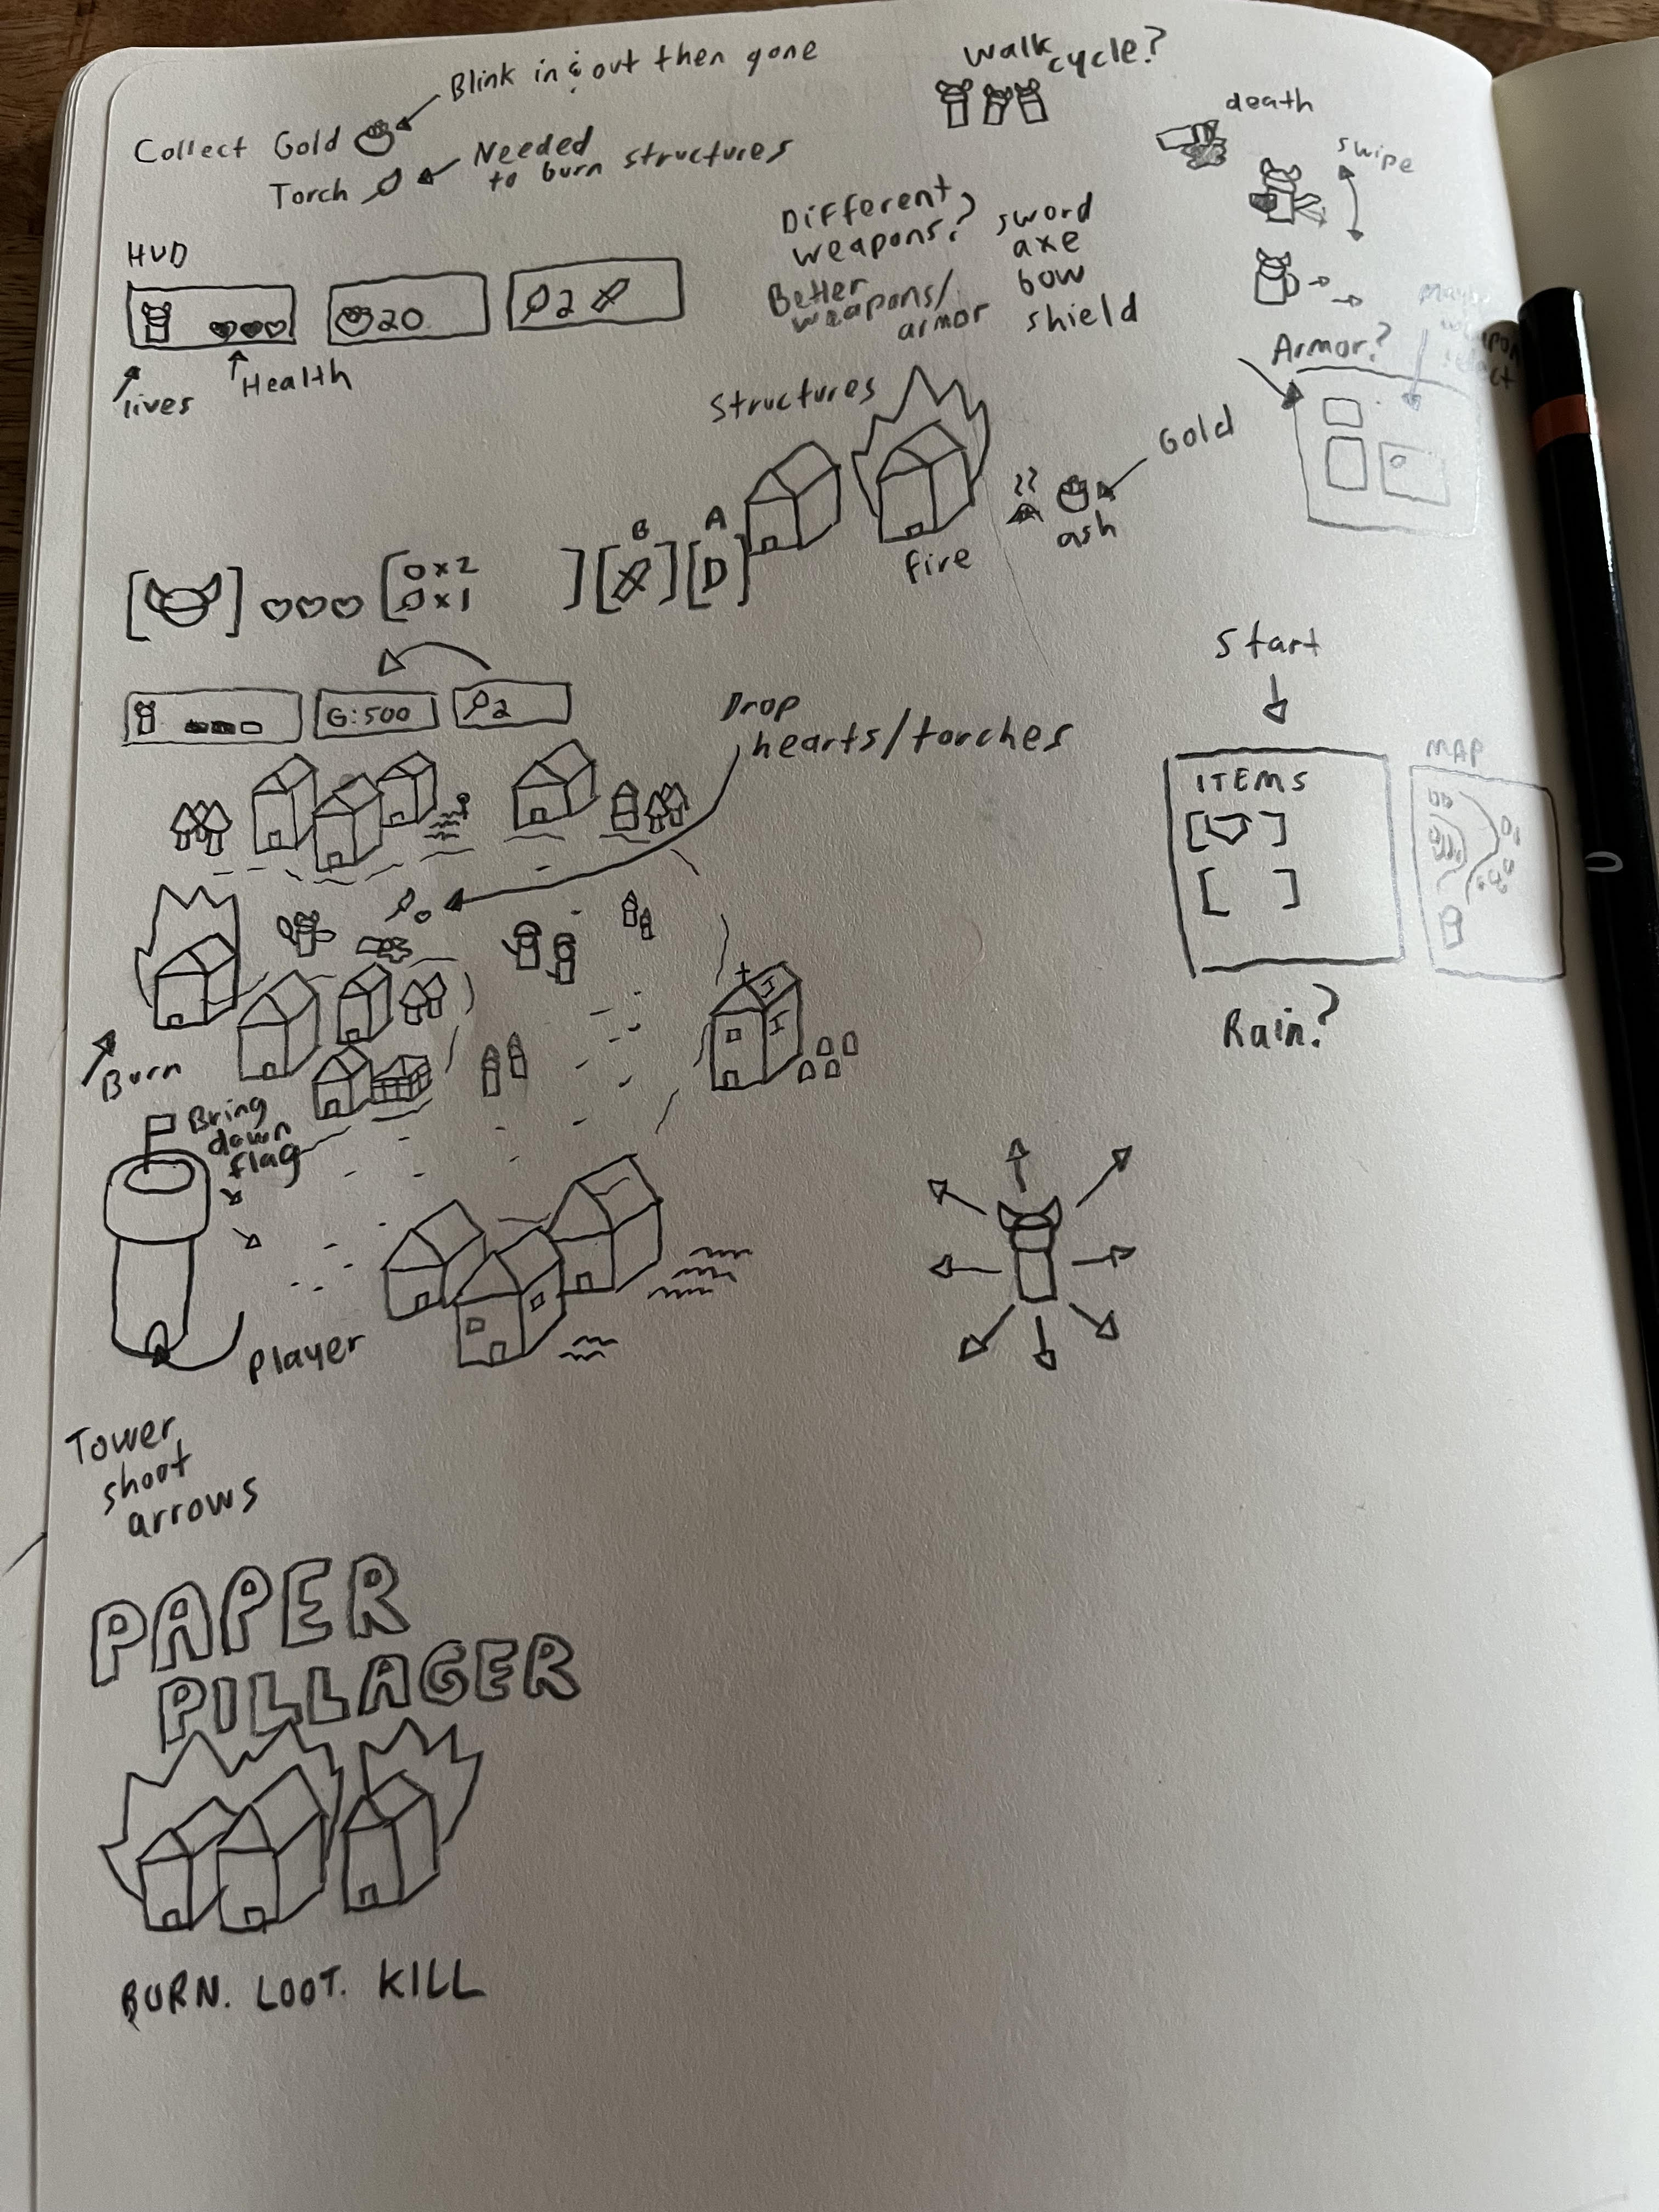 Blink in & out then gone
Collect Gold
Torch
Needed
to burn structures
Walk
cycle?
death
swipe
Different
weapons?
Better
weapons/
armor
sword
axe
bow
shield
HUD
20
2
lives
Health
Armor?
Structures
Gold
fire
ash
B
A
x2
x1
D
G:500
2
Drop
hearts/torches
Start
ITEMS
MAP
Rain?
Burn
Bring
down
flag
Player
Tower
shoot
arrows
PAPER
PILLAGER
BURN. LOOT. KILL